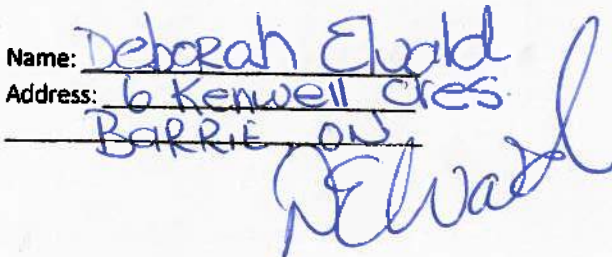 Name: Deborah Elwald
Address: 6 Kenwell Cres.
BARRIE, ON
DElwald